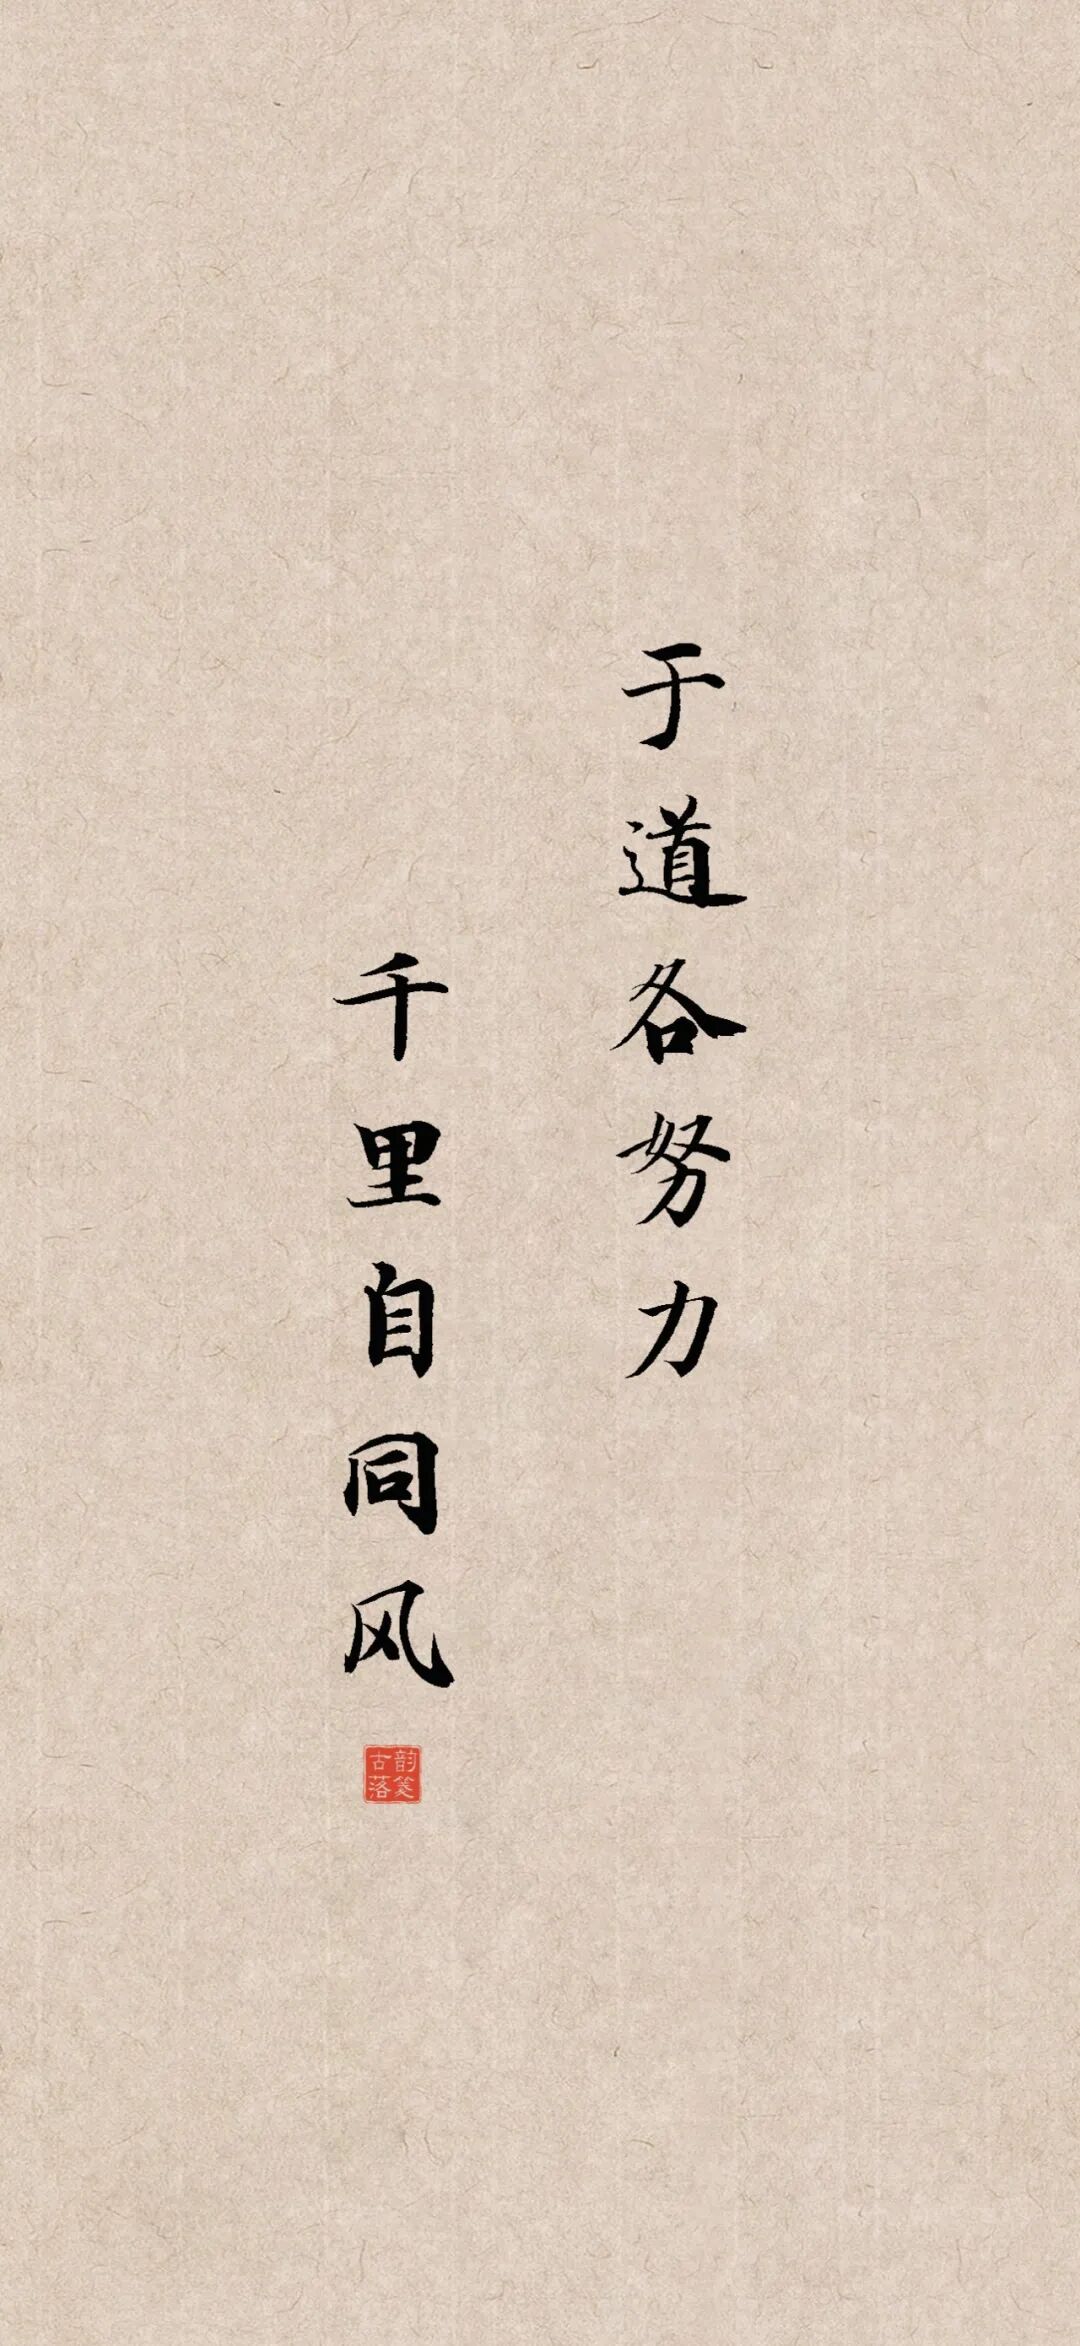 于道各努力
千里自同风
古韵
落笺